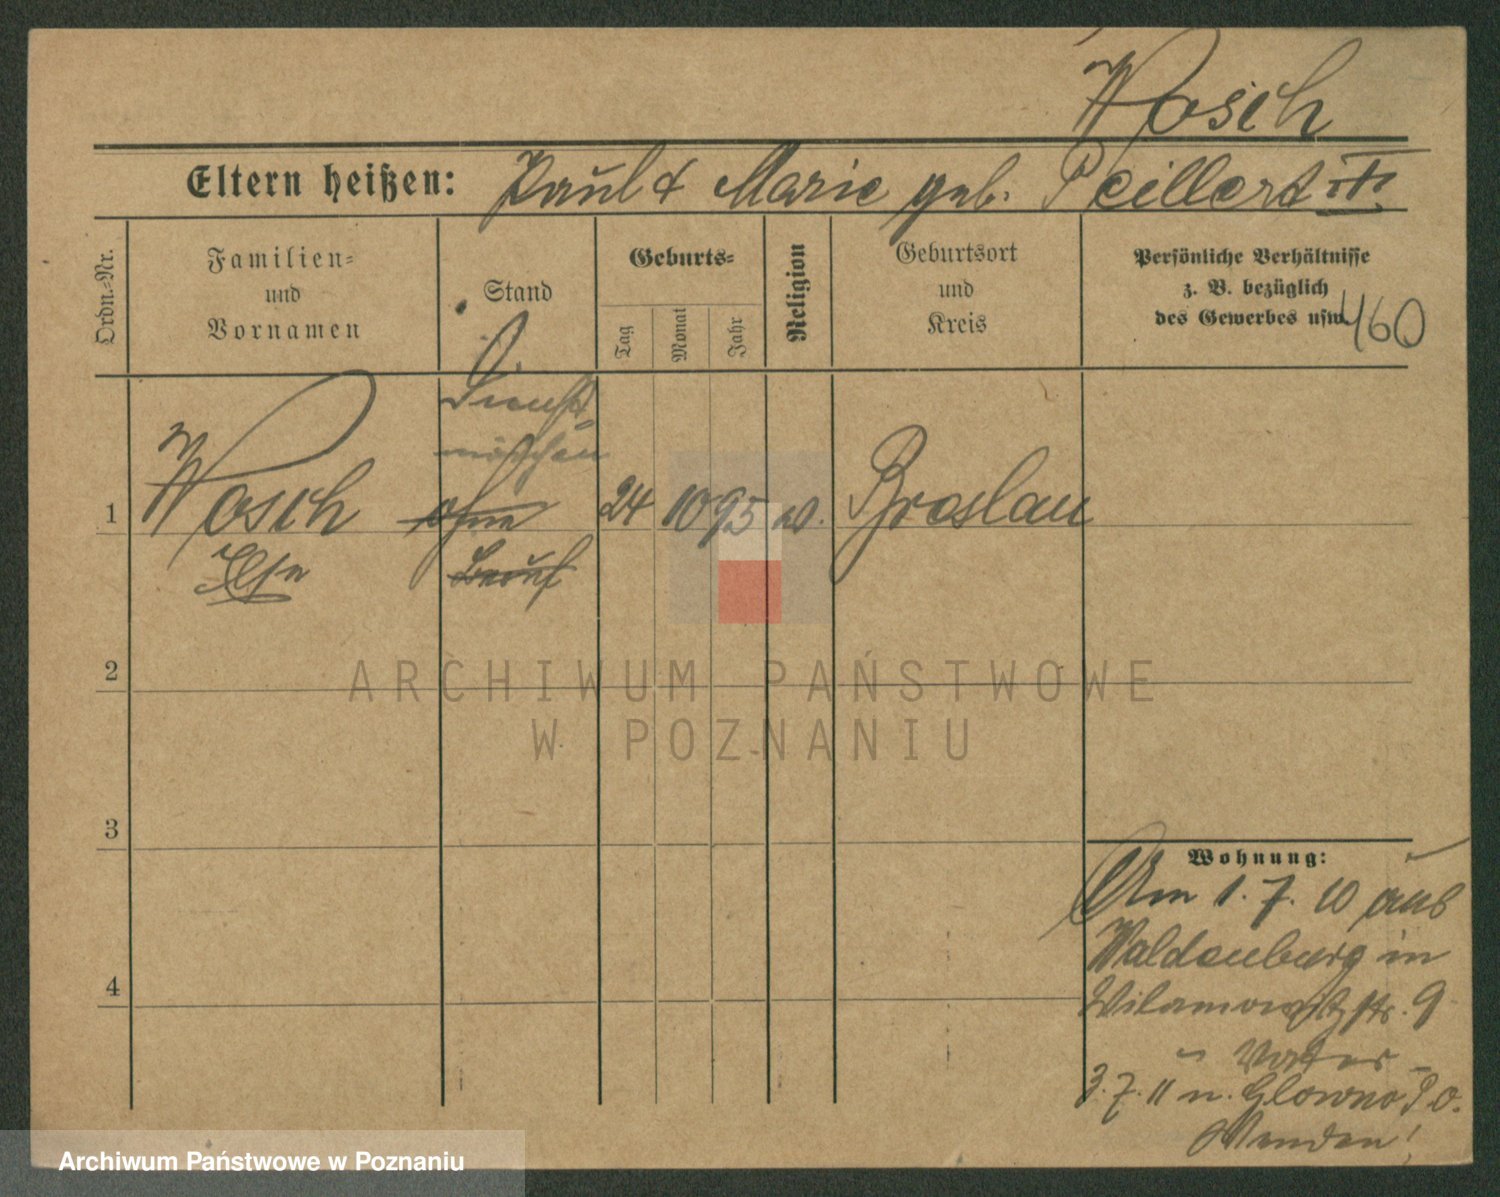 Wosch
Eltern heißen: Paul & Marie geb. Peillert
Ordn.-Nr.
Familien- und Vornamen
Stand
Geburts-
Tag
Monat
Jahr
Religion
Geburtsort und Kreis
Persönliche Verhältnisse
z. B. bezüglich
des Gewerbes usw.
460
Dienst-
mädchen
1 Wosch ohne 24 10 95 Breslau
Else Beruf
2
3
4
Wohnung:
Am 1.7.10 aus
Waldenburg in
Wilamowitzstr. 9
3.7.11 n. Glowno
ARCHIWUM PAŃSTWOWE
W POZNANIU
Archiwum Państwowe w Poznaniu